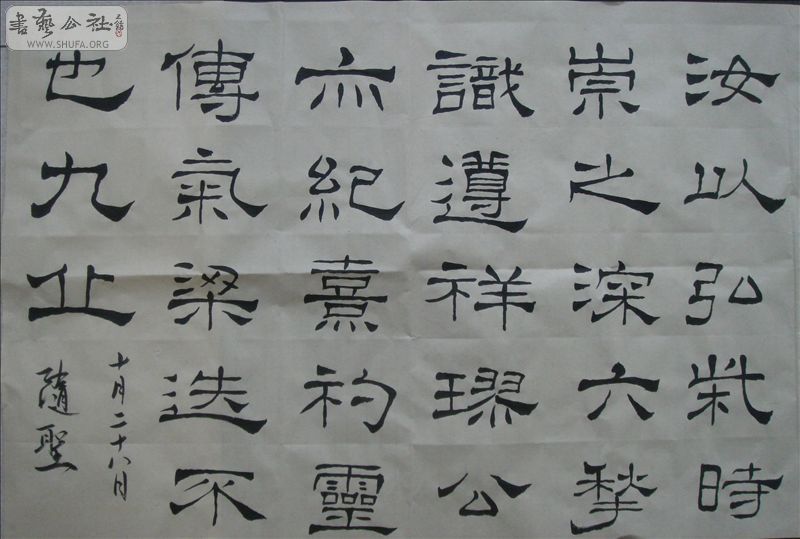 汝以弘時
崇之深六
識遵祥公
亦紀熹礿靈
傳氣梁迭不
也九止
十月二十八日
隨聖
書藝公社
WWW.SHUFA.ORG